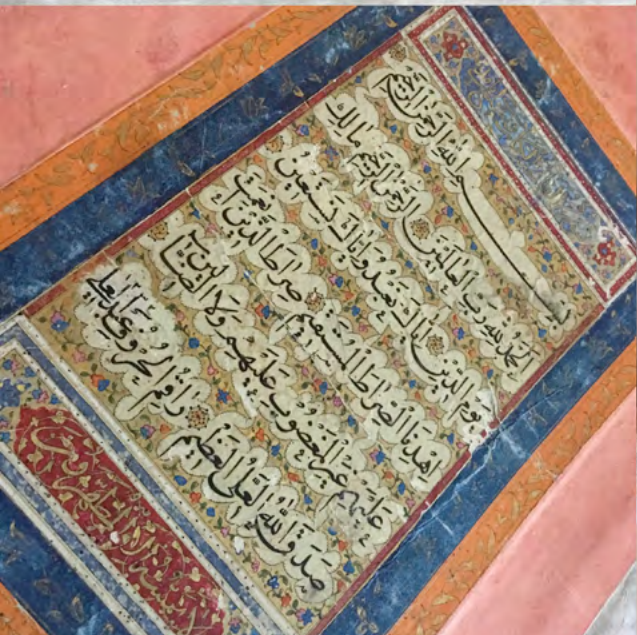 بسم الله الرحمن الرحيم
الحمد لله رب العالمين الرحمن الرحيم مالك
يوم الدين اياك نعبد واياك نستعين
اهدنا الصراط المستقيم صراط الذين انعمت
عليهم غير المغضوب عليهم ولا الضالين
صدق الله العلي العظيم
لا يمسه الا المطهرون